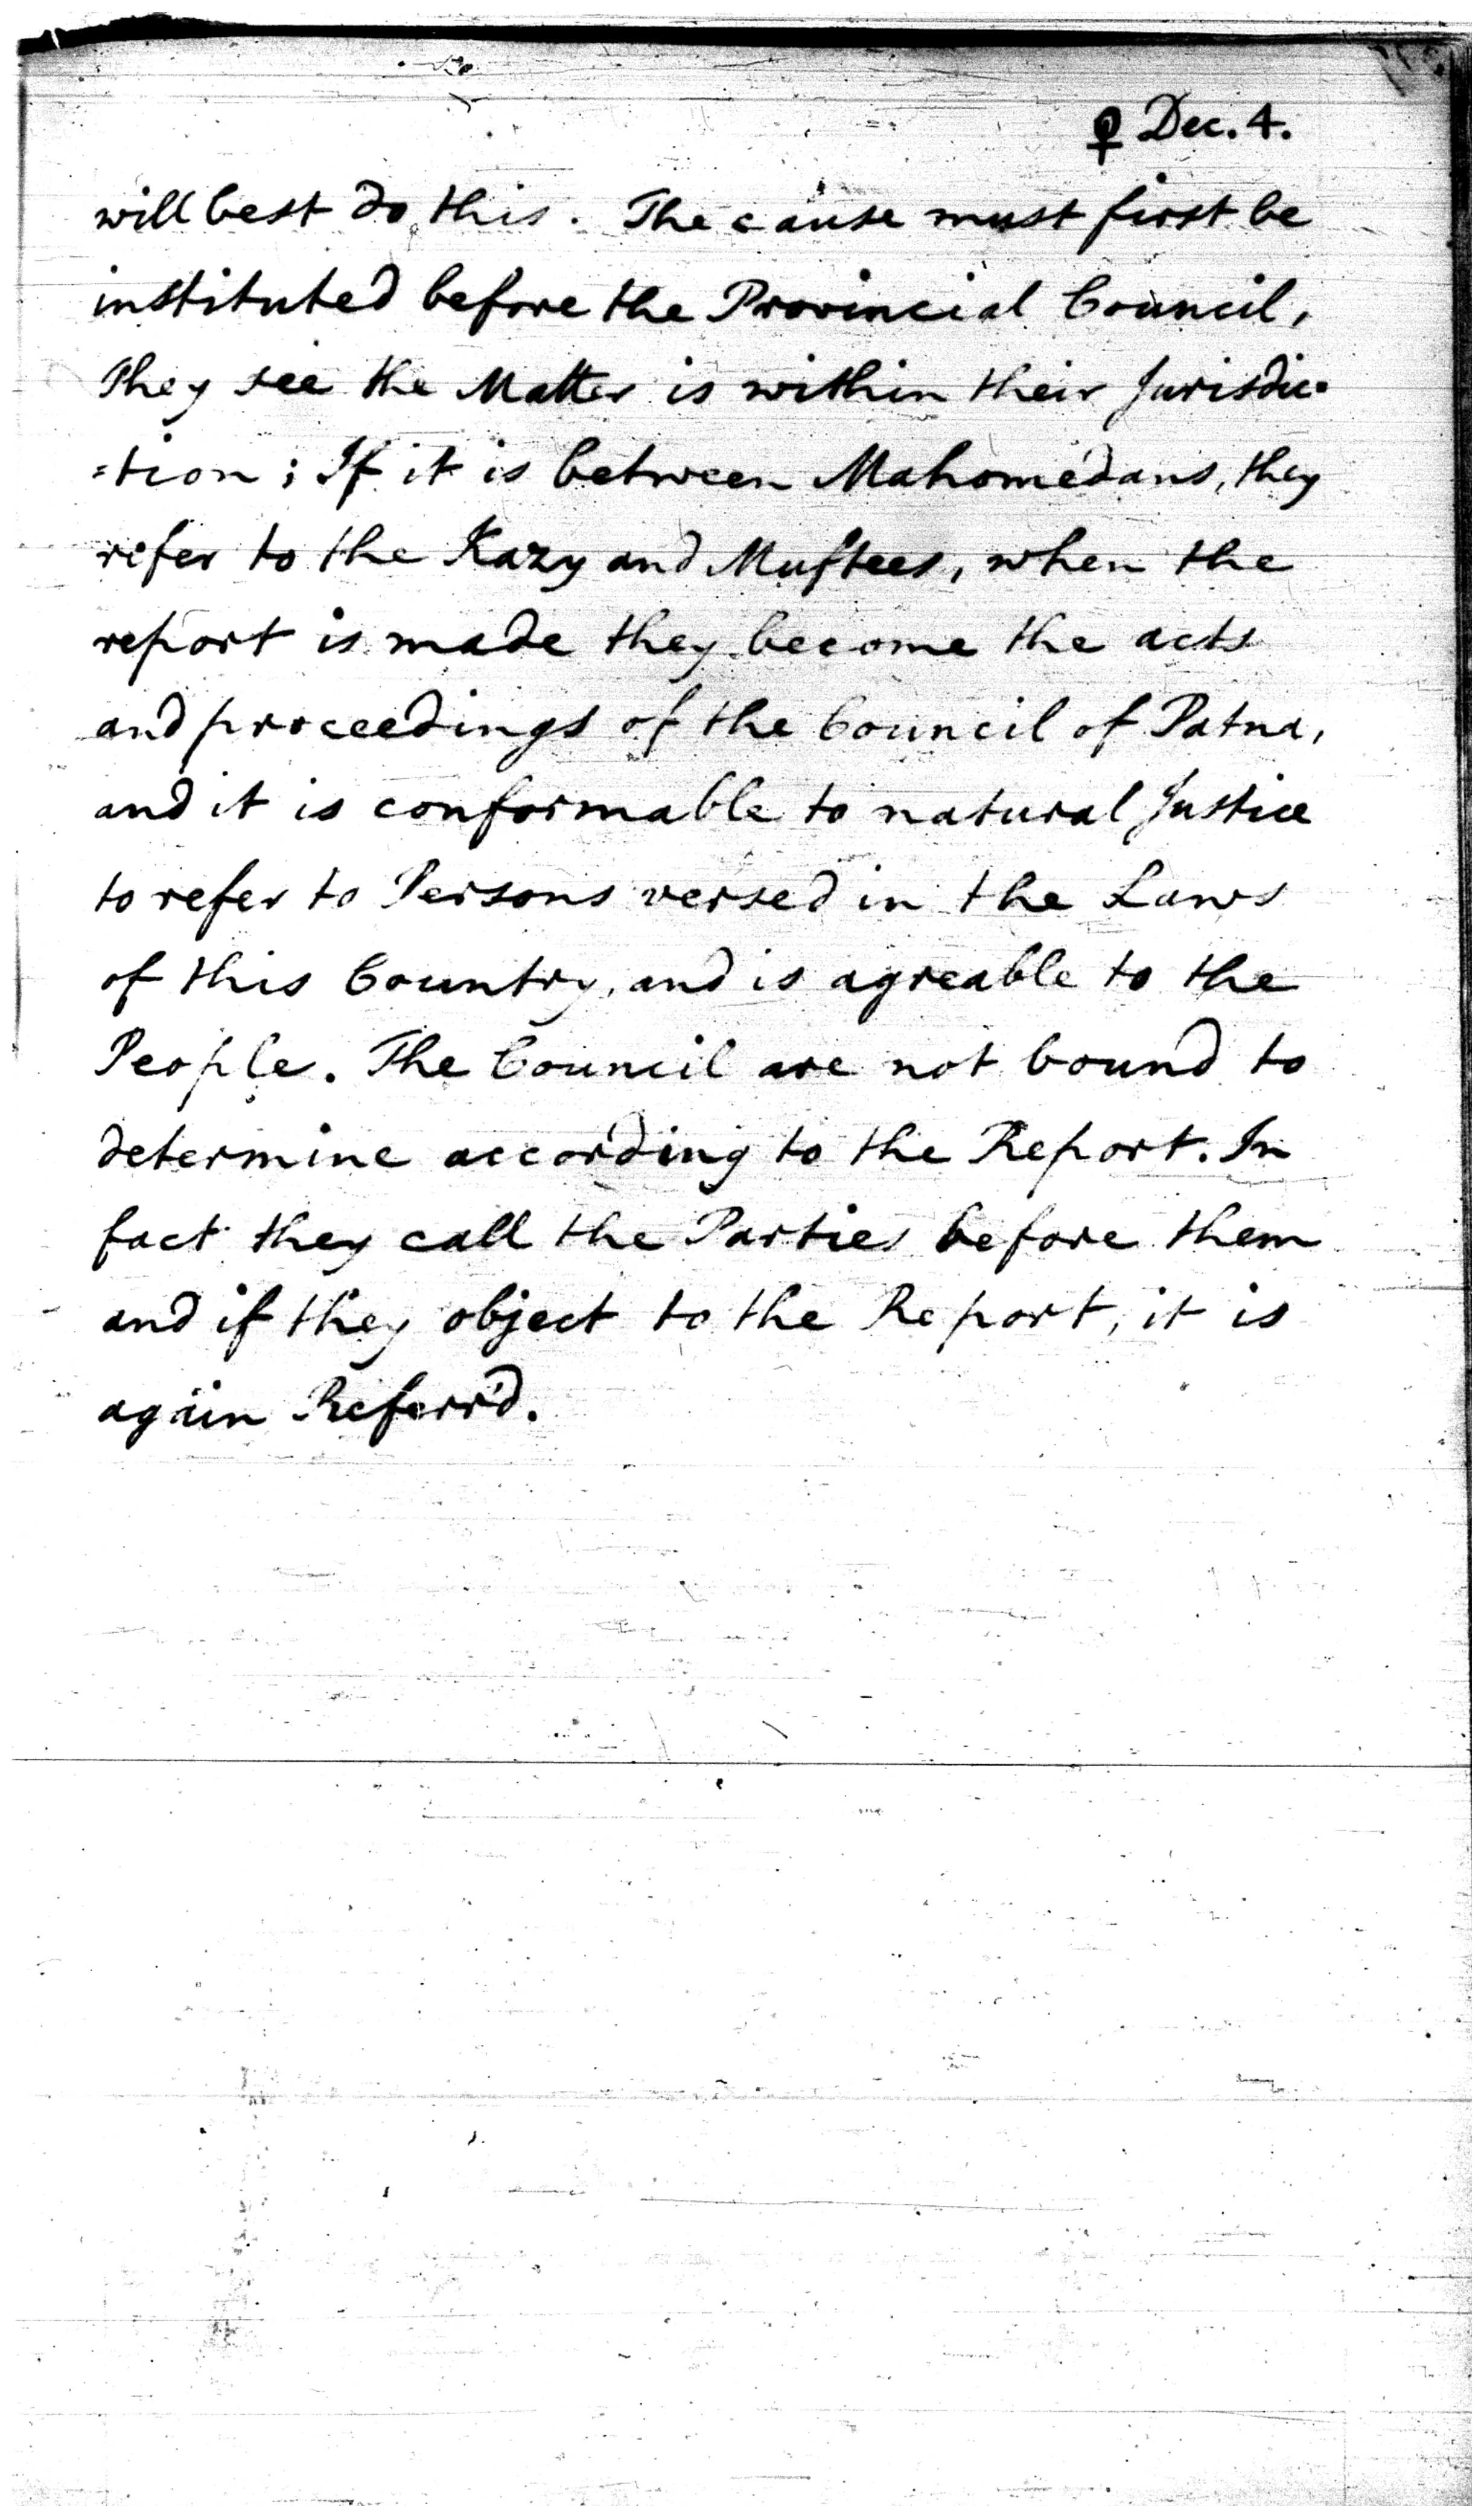 ♀ Dec. 4.
will best do this. The cause must first be
instituted before the Provincial Council,
They see the Matter is within their Jurisdic=
=tion; If it is between Mahomedans, they
refer to the Kazy and Muftees, when the
report is made they become the acts
and proceedings of the Council of Patna,
and it is conformable to natural Justice
to refer to Persons versed in the Laws
of this Country, and is agreable to the
People. The Council are not bound to
determine according to the Report. In
fact they call the Parties before them
and if they object to the Report, it is
again Referr'd.